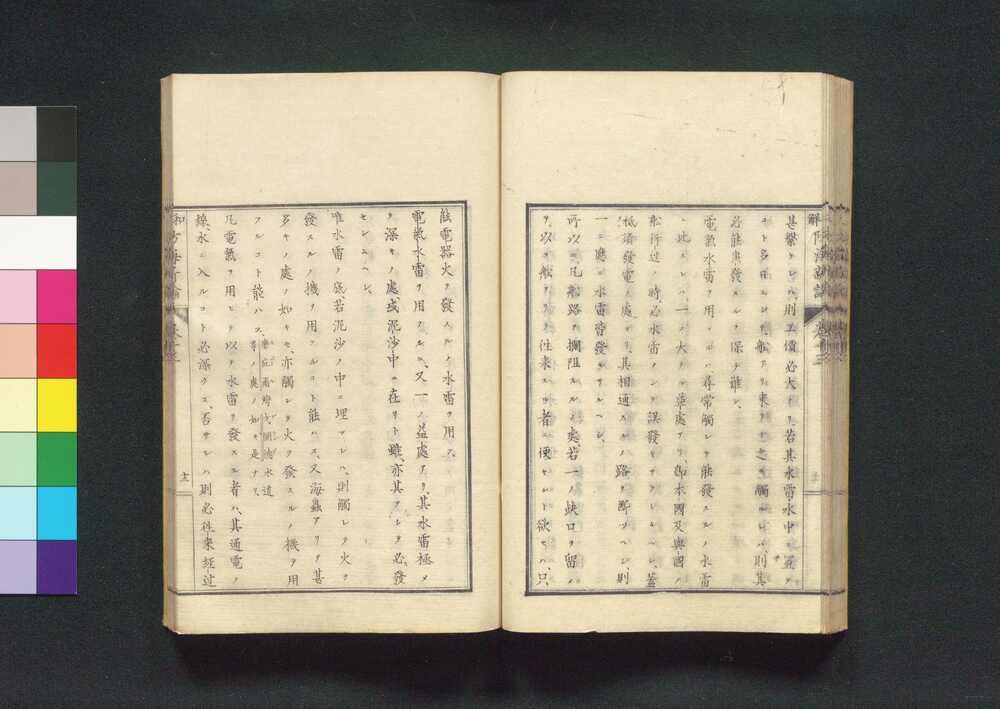 甚繁ケレハ、則工價必大ナリ、若其水雷水中ニ置ク
コト多日ニシテ、船アリ來リテ之ニ觸ルレバ、則其
必能奧發スルヲ保チ難シ、
電氣水雷ヲ用ルハ、尋常觸レテ能發スルノ水雷
ニ比スレハ、一ノ大ナル益處アリ、即本國及與國ノ
船行過ノ時、必水雷ノシテ誤發セサラシムヘシ、蓋
祗須發電ノ處ニテ、其相通スルノ路ヲ斷ツヘシ、則
一ニ應ノ水雷皆發セサルヘシ、
所以ニ凡船路ヲ攔阻スルノ處、若一ノ缺口ヲ留メ
ヲ、以テ船ヲシテ往來スル者ニ便セシト欲セハ、只
能電器火ヲ發スルノ水雷ヲ用ス、
電氣水雷ヲ用フルニ、又一ノ益處アリ、其水雷極メ
テ深キノ處或泥沙中ニ在リト雖、亦其ヲシテ必發
セシムヘシ、
唯水雷ノ底若泥沙ノ中ニ埋マレハ、則觸レテ火ヲ
發スルノ機ヲ用フルコト能ハス、又海蟲アリテ甚
多キノ處ノ如キモ、亦觸レテ火ヲ發スルノ機ヲ用
フルコト能ハス、
等ノ處ノ如キ是ナリ
凡電氣ヲ用ヒテ以テ水雷ヲ發スル者ハ、其通電ノ
線、水ニ入ルコト必深クス、否サレハ則必往來經過